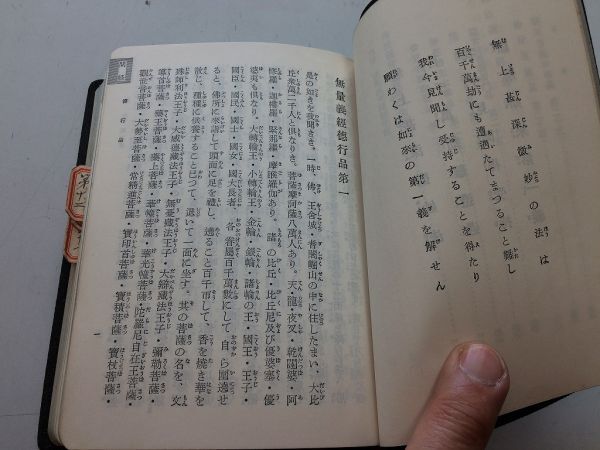 無上甚深微妙の法は
百千萬劫にも遭遇たてまつること難し
我今見聞し受持することを得たり
願わくは如來の第一義を解せん
無量義經德行品第一
是の如きを我聞きき。一時、佛、王舍城・耆闍崛山の中に住したまい、大比
丘衆萬二千人と倶なりき。菩薩摩訶薩八萬人あり。天・龍・夜叉・乾闥婆・阿
修羅・迦樓羅・緊那羅・摩睺羅伽あり。諸の比丘・比丘尼及び優婆塞・優
婆夷も倶なり。大轉輪王・小轉輪王・金輪・銀輪・諸輪の王・國王・王子・
國臣・國民・國士・國女・國大長者、各眷屬百千萬數にして自ら圍遶せ
ると、佛所に來詣して頭面に足を禮し、遶ること百千帀して、香を燒き華を
散じ、種種に供養すること已つて、退いて一面に坐す。其の菩薩の名を、文
殊師利法王子・大威德藏法王子・無憂藏法王子・大辯藏法王子・彌勒菩薩・
導首菩薩・藥王菩薩・藥上菩薩・華幢菩薩・華光幢菩薩・陀羅尼自在王菩薩・
觀世音菩薩・大勢至菩薩・常精進菩薩・寶印首菩薩・寶積菩薩・寶杖菩薩・
德行品
一